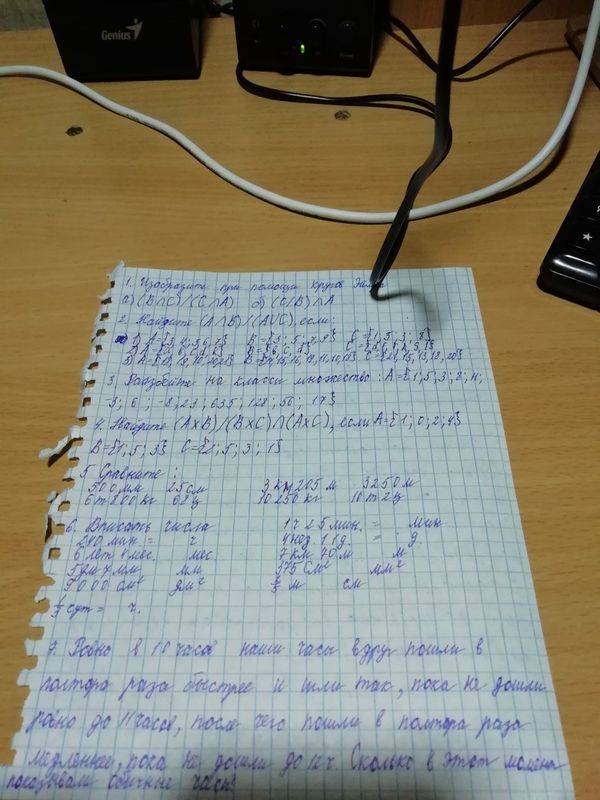 Genius
1. Изобразите при помощи кругов
а) (B∩C)/(C∩A) б) (C/B)∩A
2. Найдите (A∩B)/(A∪C), если:
3. Разбейте на классы множество: A={1; 5; 3; 2; 11;
-3; 6; -8; 23; 635; 128; 56; 17}
4. Найдите (A×B)/(B×C)∩(A×C), если A={1; 0; 2; 4}
B={1; 5; 3} C={2; 5; 3; 1}
5. Сравните:
500 мм 25 см 3 км 205 м 3250 м
6 т 800 кг 68 ц 10 250 кг 10 т 2 ц
6. Вписать числа 1 ч 25 мин. = мин
240 мин = ч 4 нед 11 д = д
6 лет 4 мес. мес. 7 км 70 м м
5 дм 7 мм мм 375 см² мм²
9000 см² дм² м см
сут = ч.
Ровно в 10 часов наши часы вдруг пошли в
полтора раза быстрее и шли так, пока не дошли
ровно до 11 часов, после чего пошли в полтора раза
медленнее, пока не дошли до 12 ч. Сколько в этот момент
показывали обычные часы?